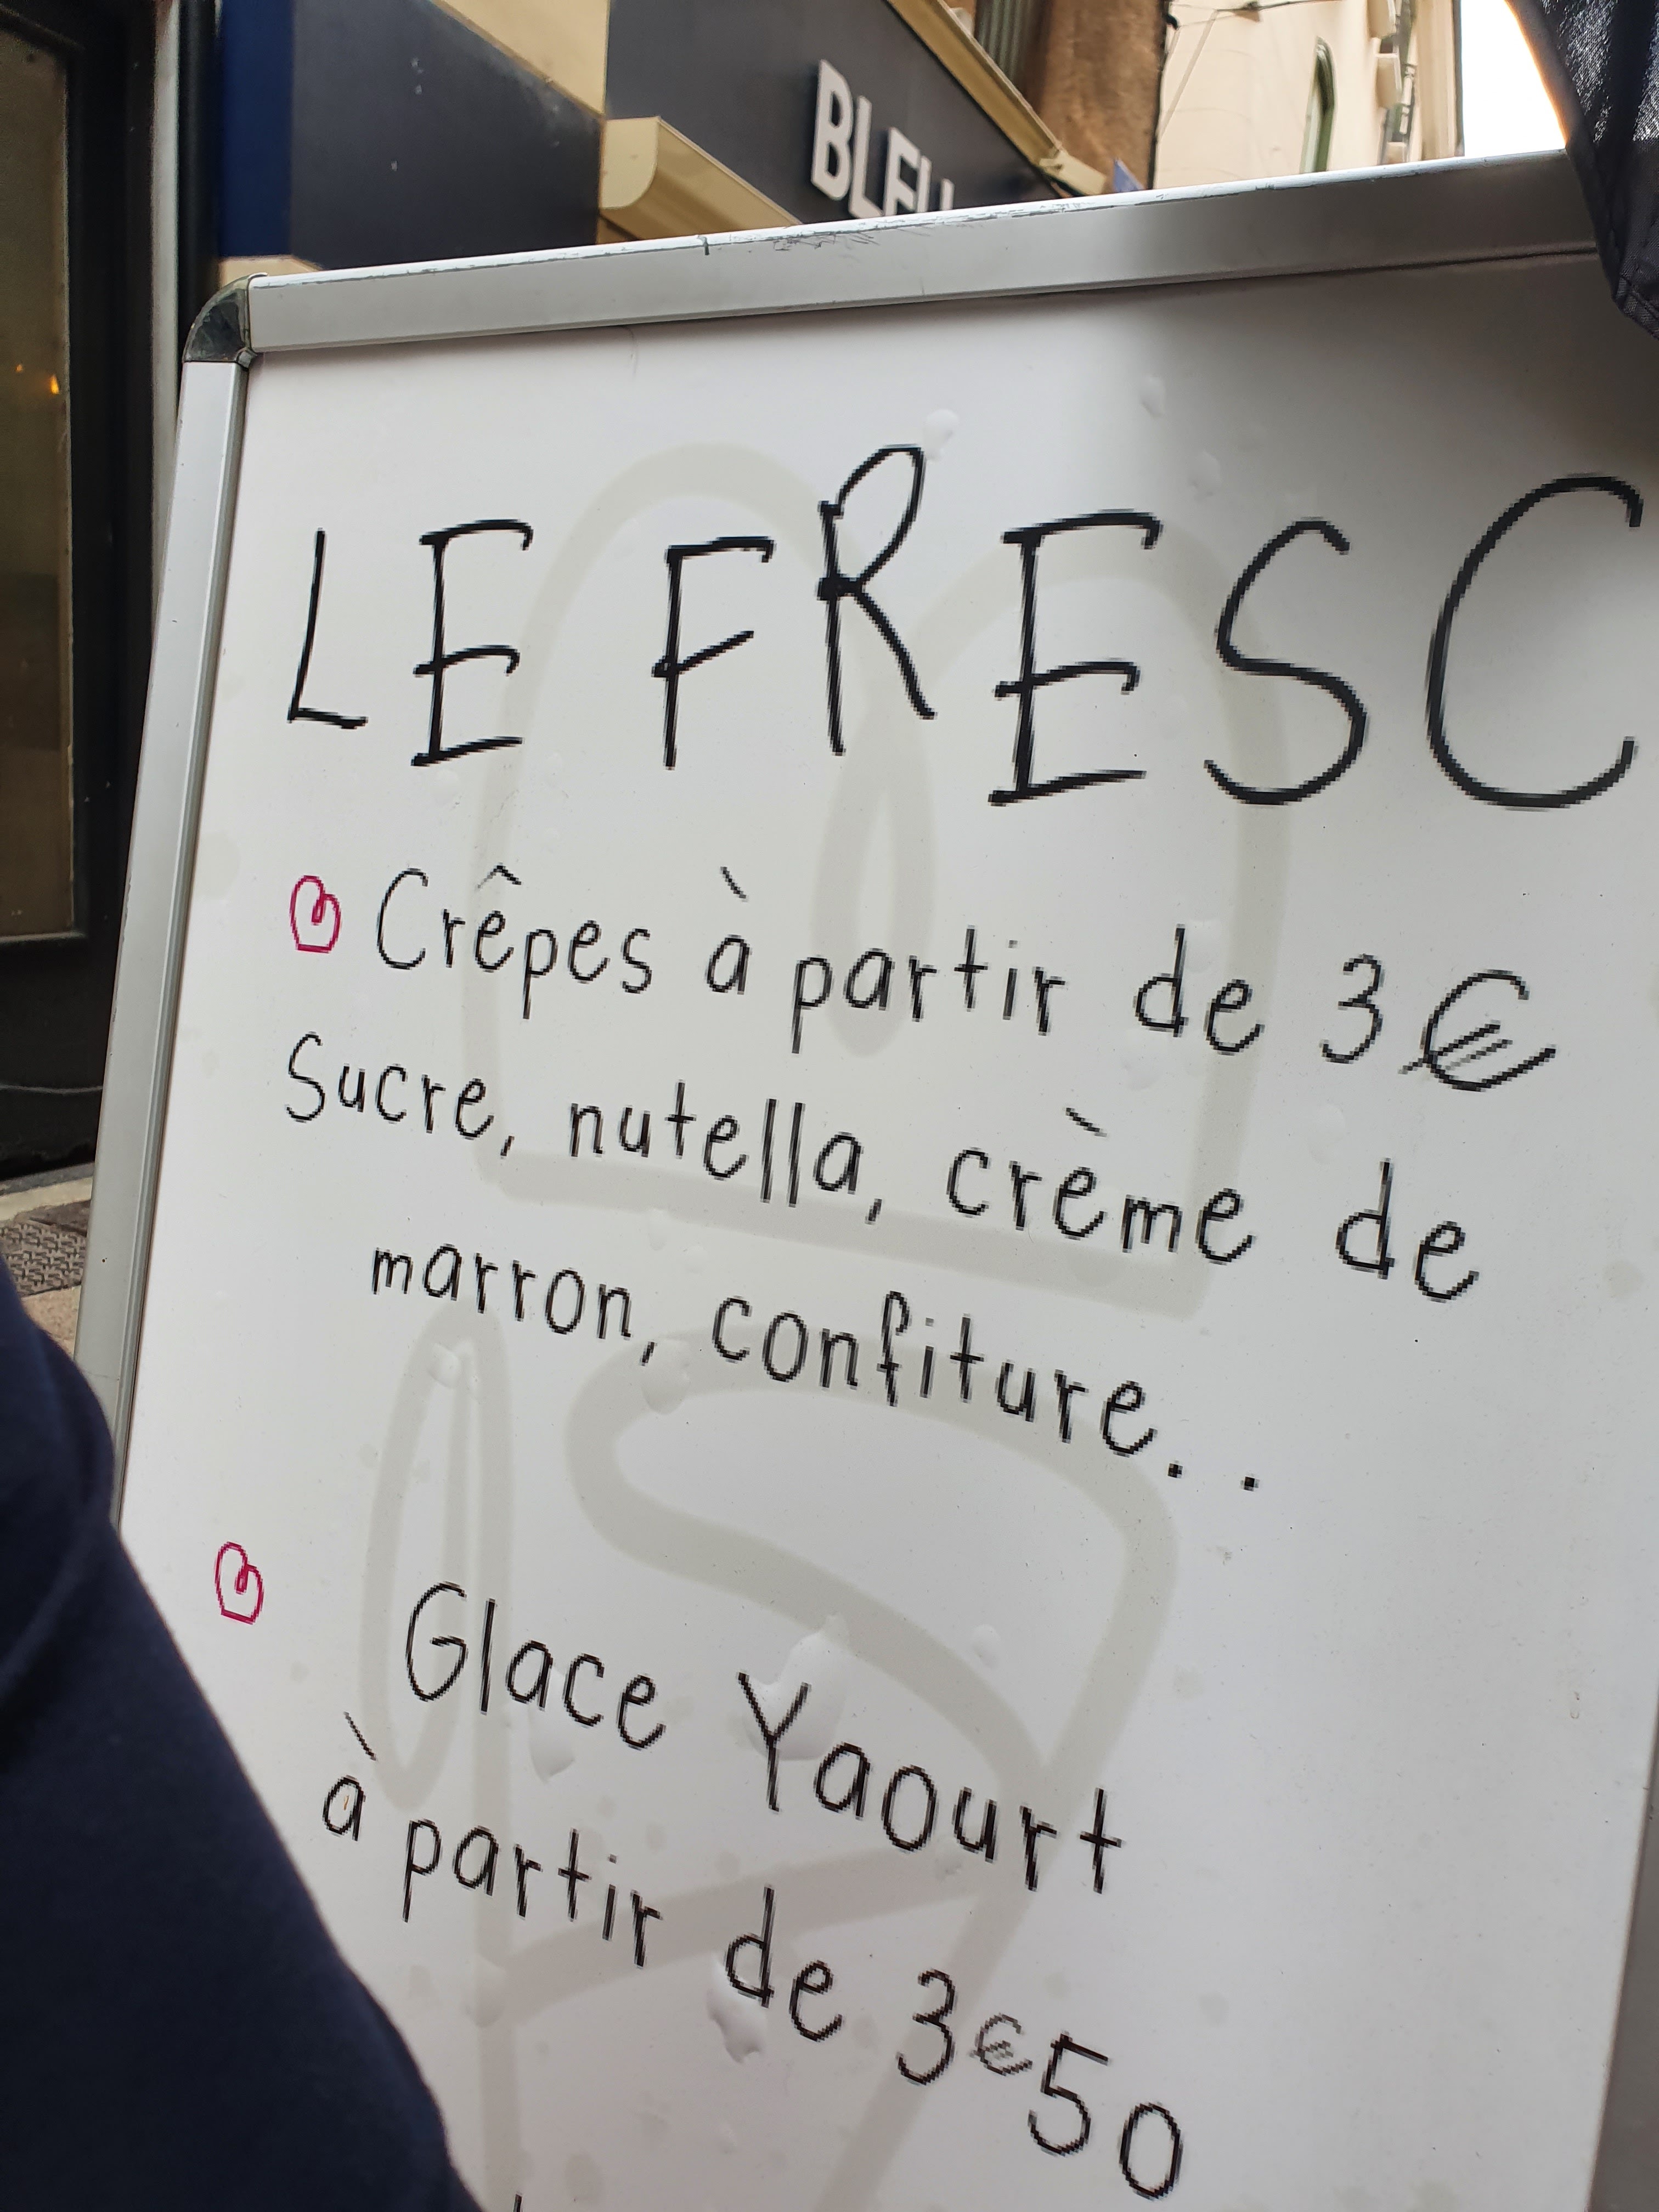 BLEU
LE FRESC
Crêpes à partir de 3€
Sucre, nutella, crème de
marron, confiture..
Glace Yaourt
à partir de 3€50